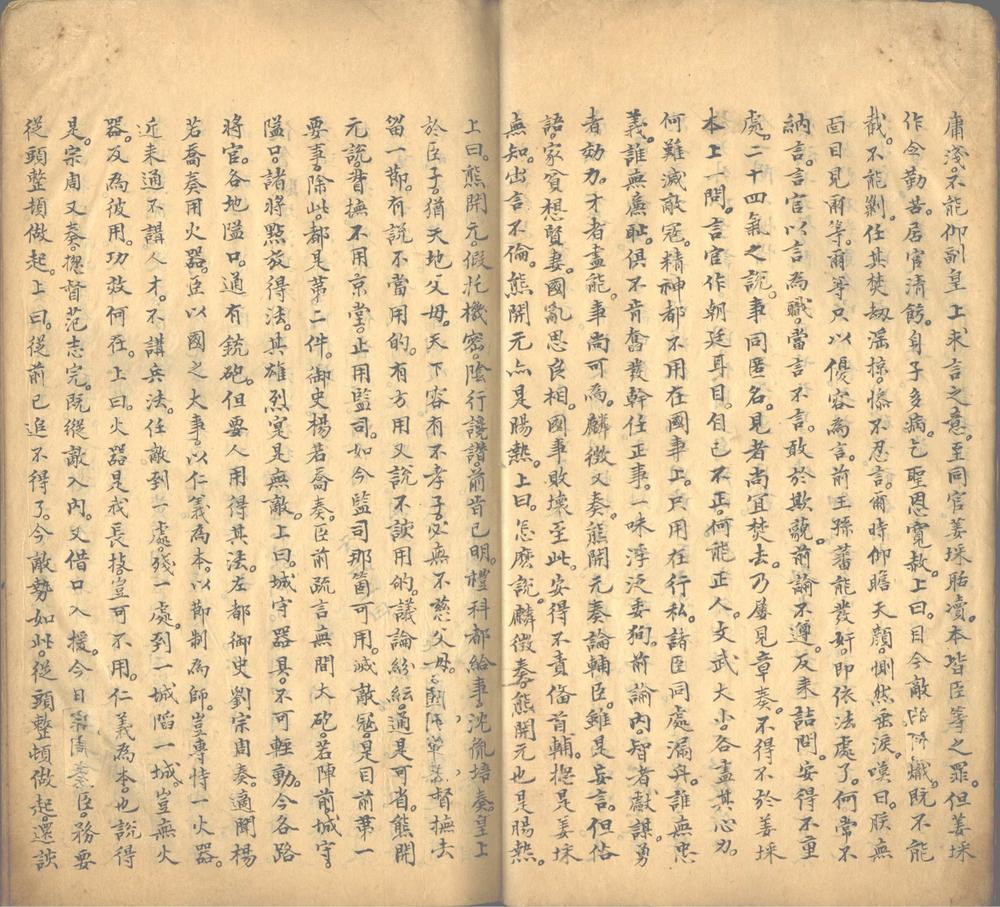 庸淺。不能仰副皇上求言之意。至同官姜埰貽瀆。本皆臣等之罪。但姜埰
作令勤苦。居官清餙。身子多病。乞聖恩寬赦。上曰。目今敵熾。既不能
截。不能剿。任其焚劫滛掠。慘不忍言。爾時仰瞻天顔。惻然垂淚。嘆曰。朕無
面目見爾等。爾等只以優容為言。前王孫蕃能發奸。即依法處了。何常不
納言。言官以言為職。當言不言。敢於欺藐。前諭不遵。反来詰問。安得不重
處。二十四氣之說。事同匿名。見者尚宜焚去。乃屢見章奏。不得不於姜埰
本上一問。言官作朝廷耳目。自己不正。何能正人。文武大小。各盡其心力。
何難滅敵寇。精神都不用在國事上。只用在行私。諸臣同處漏舟。誰無忠
義。誰無廉恥。俱不肯奮發幹任正事。一味浮泛委狥。前諭内。智者獻謀。勇
者効力。才者盡能。事尚可為。麟徵又奏。熊開元奏論輔臣。雖是妄言。但佔
語。家貧想賢妻。國亂思良相。國事敗壞至此。安得不責俻首輔。揔是姜埰
無知。出言不倫。熊開元亦是腸熱。上曰。怎庅說。麟徵奏。熊開元也是腸熱。
上曰。熊開元假托機密。陰行讒譖。前旨已明。禮科都給事。沈胤培奏。皇上
於臣子。猶天地父母。天下容有不孝子。必無不慈父母。督撫去
留一節。有說不當用的。有方用又說不該用的。議論紛紜。通是可省。熊開
元說。督撫不用京堂。止用監司。如今監司那箇可用。滅敵冦。是目前第一
要事。除此。都是第二件。御史楊若喬奏。臣前疏言無間大砲。若陣前城守。
隘口。諸將㸃放得法。其雄烈寔是無敵。上曰。城守器具。不可輕動。今各路
将官。各地隘口。通有銃砲。但要人用得其法。左都御史劉宗周奏。適聞楊
若喬奏用火器。臣以國之大事。以仁義為本。以節制為師。豈專恃一火器。
近来通不講人才。不講兵法。任敵到一處。殘一處。到一城。陷一城。豈無火
器。反為彼用。功效何在。上曰。火器是我長技。豈可不用。仁義為本。也說得
是。宗周又奏。揔督范志完。既縱敵入内。又借口入援。今日宗周奏臣。務要
從頭整頓做起。上曰。從前已追不得了。今敵勢如此。從頭整頓做起。還該